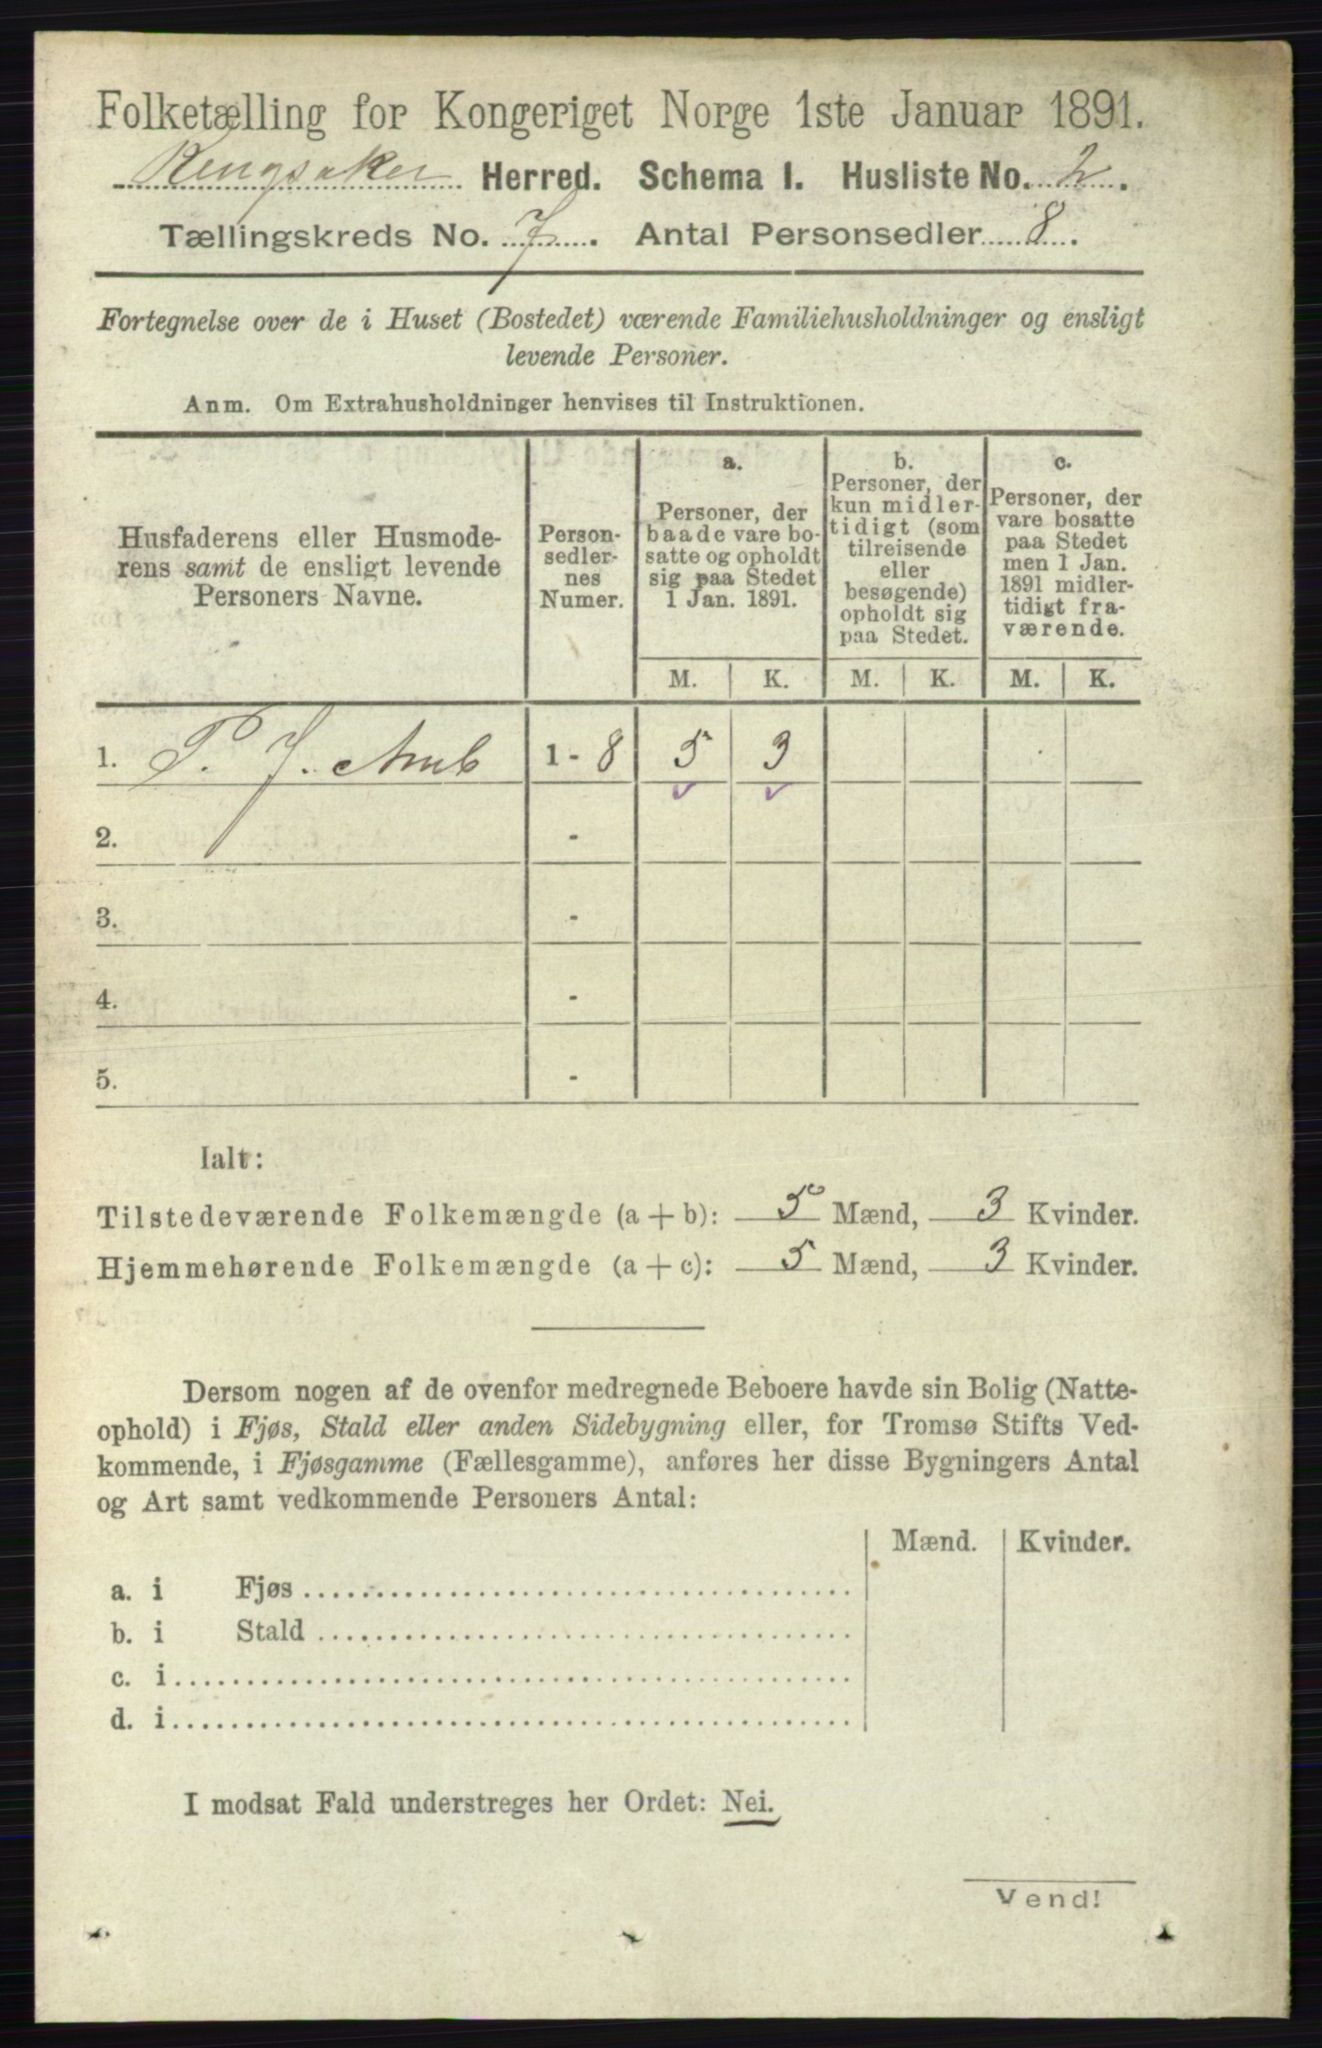 Folketælling for Kongeriget Norge 1ste Januar 1891.
Ringsaker Herred. Schema I. Husliste No. 2.
Tællingskreds No. 7. Antal Personsedler 8.
Fortegnelse over de i Huset (Bostedet) værende Familiehusholdninger og ensligt
levende Personer.
Anm. Om Extrahusholdninger henvises til Instruktionen.
Husfaderens eller Husmode-
rens samt de ensligt levende
Personers Navne.
Person-
sedler-
nes
Numer.
a.
Personer, der
baade vare bo-
satte og opholdt
sig paa Stedet
1 Jan. 1891.
b.
Personer, der
kun midler-
tidigt (som
tilreisende
eller
besøgende)
opholdt sig
paa Stedet.
c.
Personer, der
vare bosatte
paa Stedet
men 1 Jan.
1891 midler-
tidigt fra-
værende.
M. K. M. K. M. K.
1. P. J. 1 - 8 5 3
2. -
3. -
4. -
5. -
Ialt:
Tilstedeværende Folkemængde (a + b): 5 Mænd, 3 Kvinder.
Hjemmehørende Folkemængde (a + c): 5 Mænd, 3 Kvinder.
Dersom nogen af de ovenfor medregnede Beboere havde sin Bolig (Natte-
ophold) i Fjøs, Stald eller anden Sidebygning eller, for Tromsø Stifts Ved-
kommende, i Fjøsgamme (Fællesgamme), anføres her disse Bygningers Antal
og Art samt vedkommende Personers Antal:
Mænd. Kvinder.
a. i Fjøs
b. i Stald
c. i
d. i
I modsat Fald understreges her Ordet: Nei.
Vend!